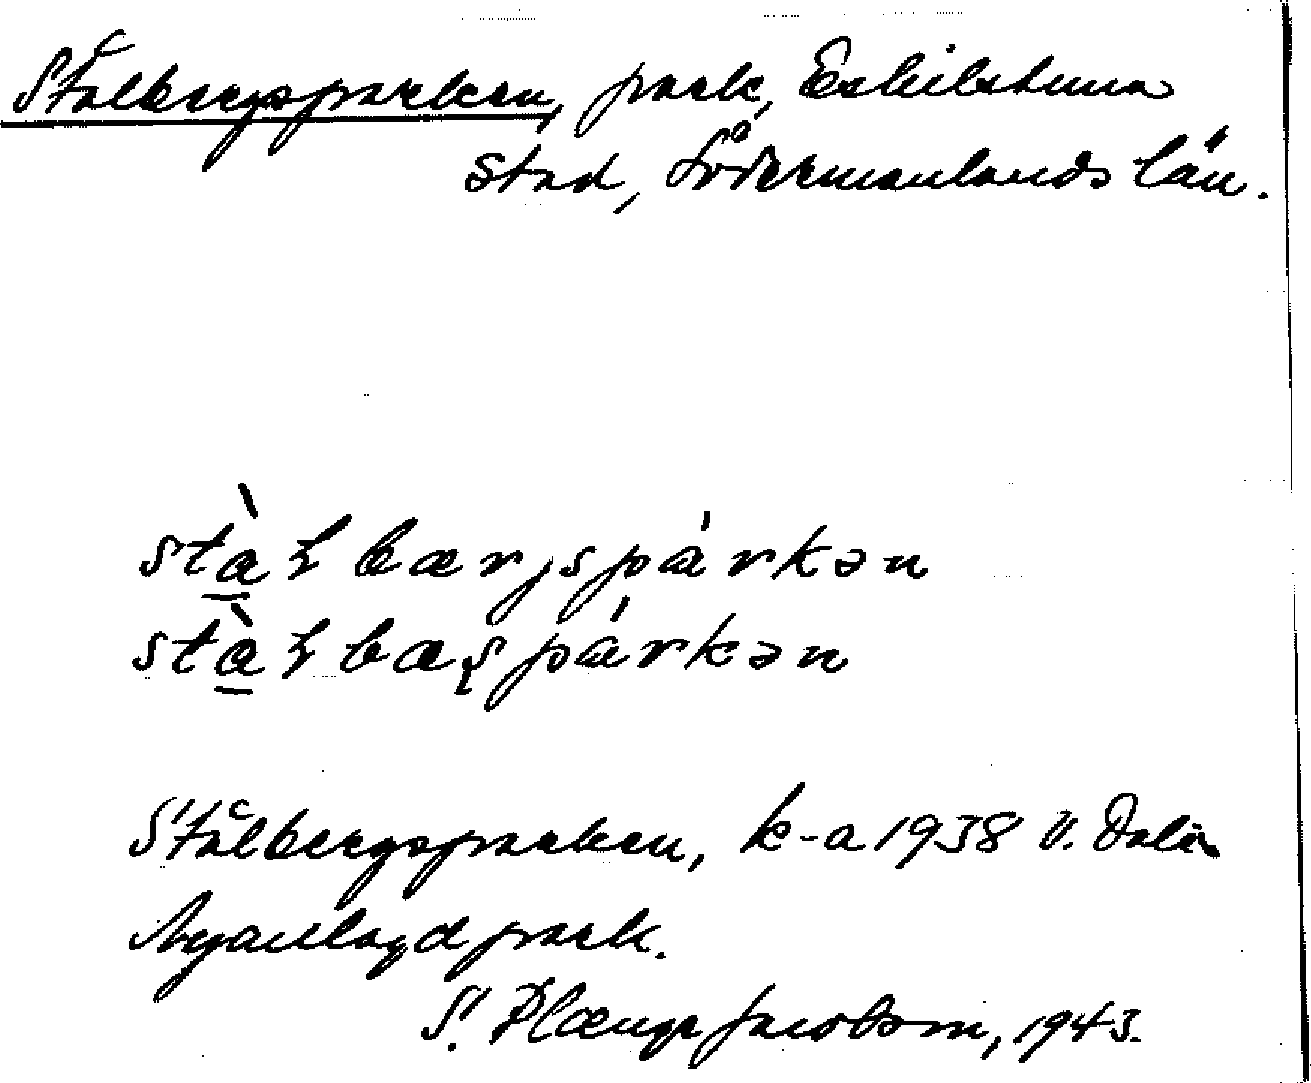 Stålbergsparken, park, Eskilstuna
stad, Södermanlands län.
stàɫbærjspárkən
stàɫbæʂpárkən
Stålbergsparken, k-a 1938 V. Dalin
Nyanlagd park.
S. Plænge Jacobson, 1943.